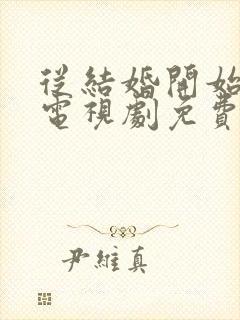 從結婚開始
電視劇免費
尹維真